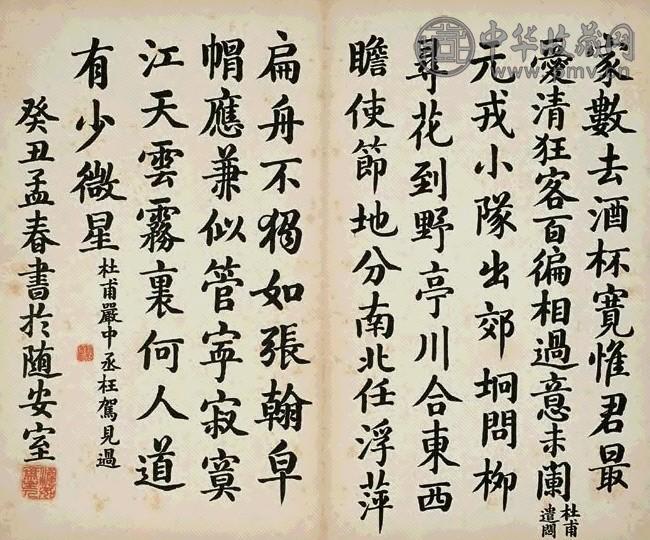 中华收藏网
家數去酒杯寬惟君最
愛清狂客百徧相過意未闌
杜甫
遣悶
元戎小隊出郊坰問柳
尋花到野亭川合東西
瞻使節地分南北任浮萍
扁舟不獨如張翰皁
帽應兼似管寧寂寞
江天雲霧裏何人道
有少微星
杜甫嚴中丞枉駕見過
癸丑孟春書於随安室